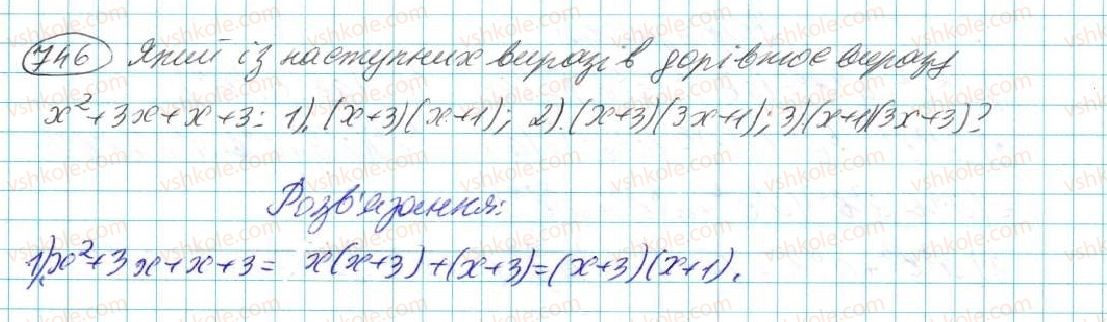 746 Який із наступних виразів дорівнює виразу
x²+3x+x+3: 1). (x+3)(x+1); 2). (x+3)(3x+1); 3)(x+1)(3x+3)?
Розв'язання:
1) x²+3x+x+3 = x(x+3)+(x+3)=(x+3)(x+1).
vshkole.com